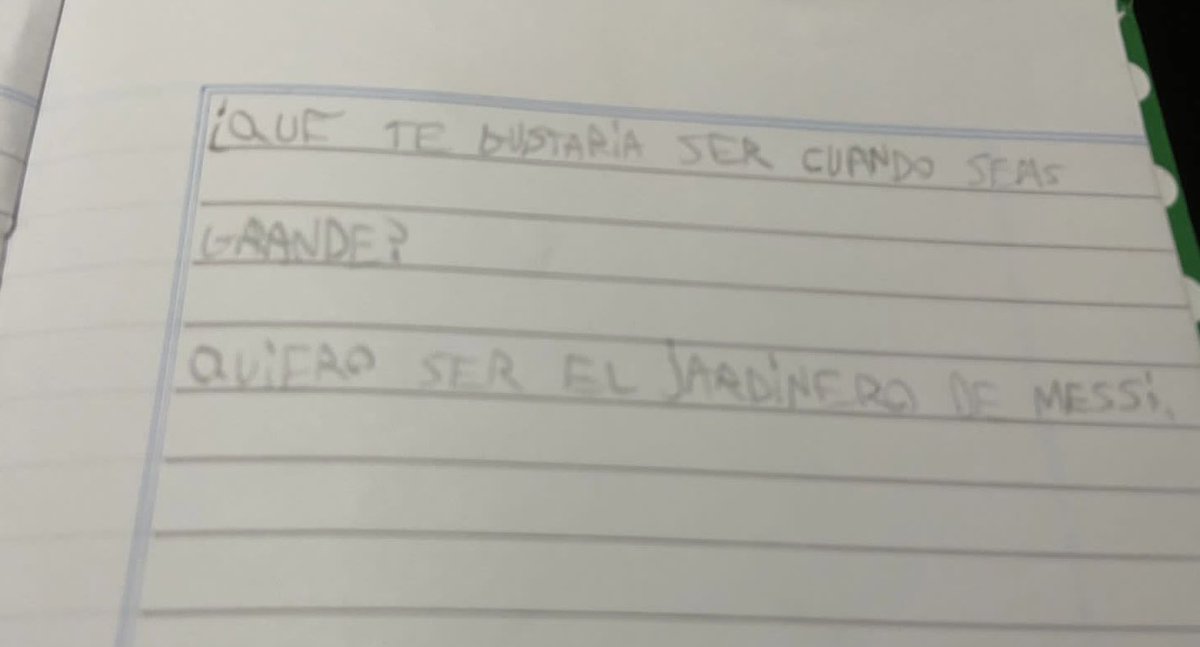 ¿QUE TE GUSTARiA SER CUANDO SEAS
GRANDE?
QUiERO SER EL JARDiNERO DE MESSi.